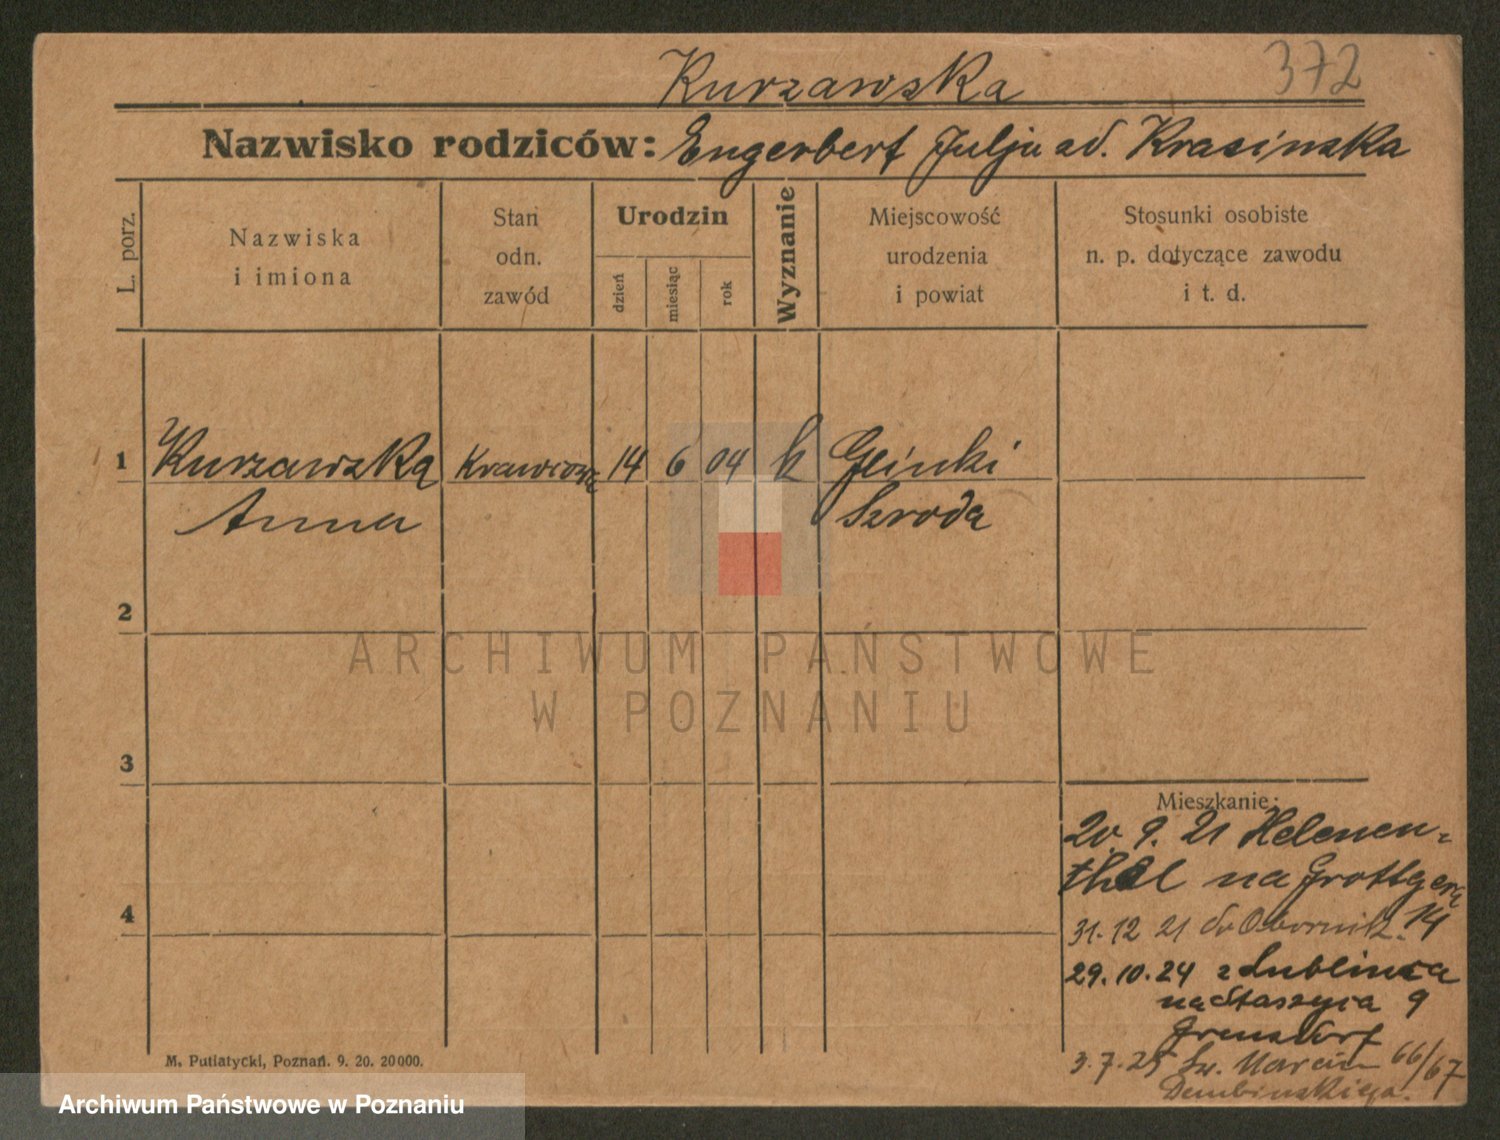 Kurzawska 372
Nazwisko rodziców: Engerbert Julju ad. Krasinska
L. porz.
Nazwiska
i imiona
Stan
odn.
zawód
Urodzin
dzień
miesiąc
rok
Wyznanie
Miejscowość
urodzenia
i powiat
Stosunki osobiste
n. p. dotyczące zawodu
i t. d.
1 Kurzawska Krawcowa 14 6 04 k Glinki
Anna Szroda
2
ARCHIWUM PAŃSTWOWE
W POZNANIU
3
Mieszkanie:
20. 9. 21 Helenen-
thal na Grottgera
4
31. 12 21 do Obornik. 14
29. 10. 24 z Lublinca
na Staszyca 9
3. 7. 25 Św. Marcin 66/67
Dembinskiego.
M. Putiatycki, Poznań. 9. 20. 20000.
Archiwum Państwowe w Poznaniu